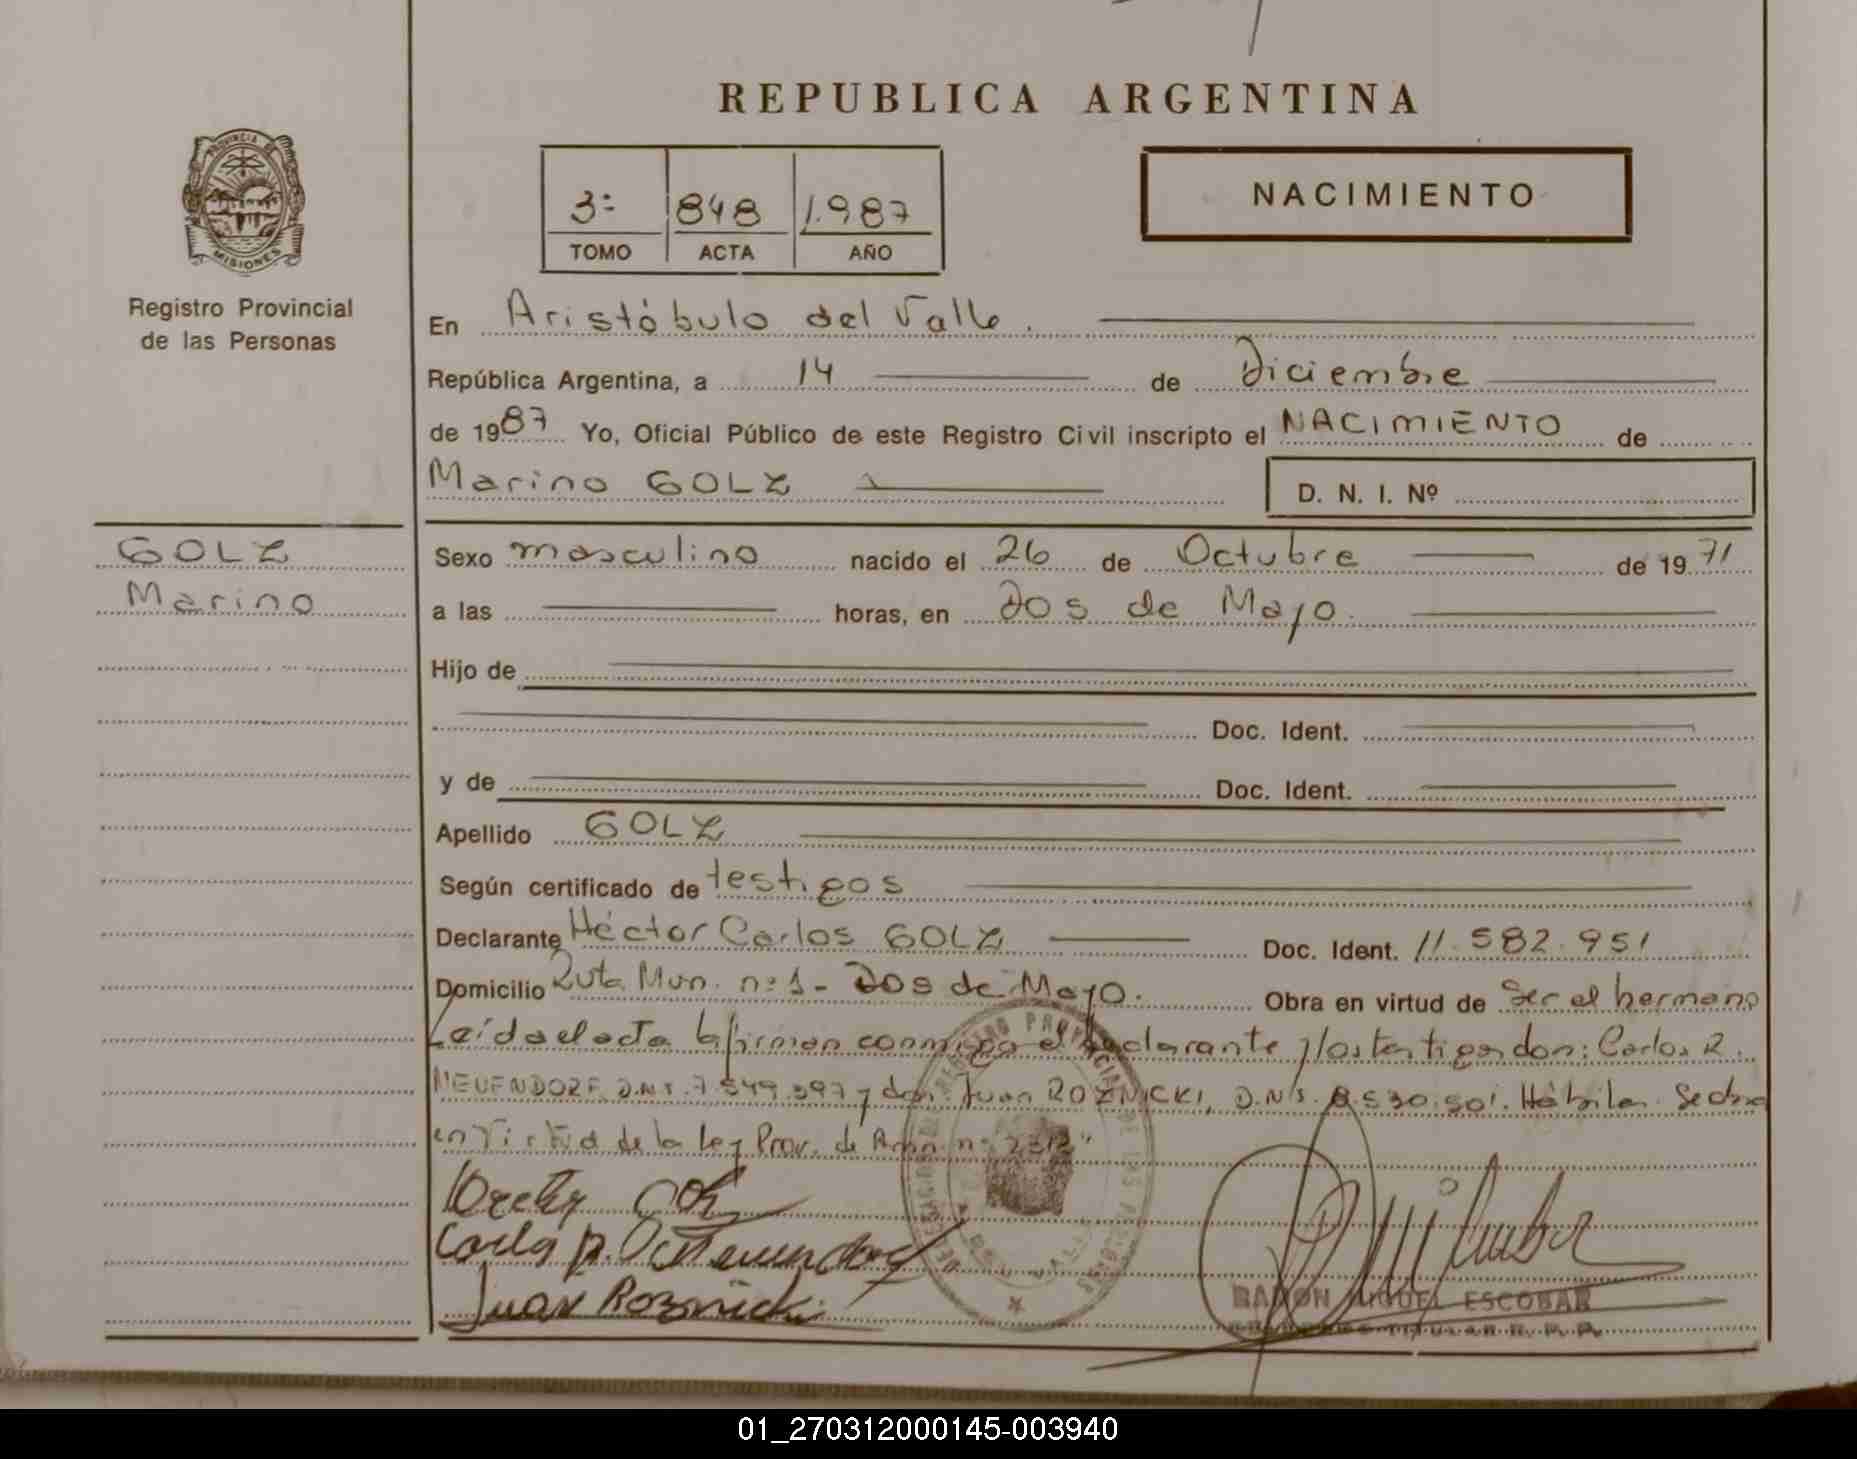 REPUBLICA ARGENTINA
PROVINCIA DE
MISIONES
Registro Provincial
de las Personas
3º 848 1.987
TOMO ACTA AÑO
NACIMIENTO
En Aristóbulo del Valle.
República Argentina, a 14 de Diciembre
de 1987 Yo, Oficial Público de este Registro Civil inscripto el NACIMIENTO de
Marino GOLZ D. N. I. Nº
GOLZ
Marino
Sexo masculino nacido el 26 de Octubre de 1971
a las horas, en Dos de Mayo.
Hijo de
Doc. Ident.
y de Doc. Ident.
Apellido GOLZ
Según certificado de testigos
Declarante Héctor Carlos GOLZ Doc. Ident. 11.582.951
Domicilio Ruta Mun. nº 1 - Dos de Mayo. Obra en virtud de Ser el hermano
Leída el acta la firman conmigo el declarante y los testigos don: Carlos R.
NEUENDORF D.N.I. 7.549.397 y don Juan ROZNICKI, D.N.I. 8.530.501. Hábiles. Se labra
en virtud de la Ley Prov. de Amn. nº 2312"
Juan Roznicki
RAMON MIGUEL ESCOBAR
TITULAR R. P. P.
01_270312000145-003940